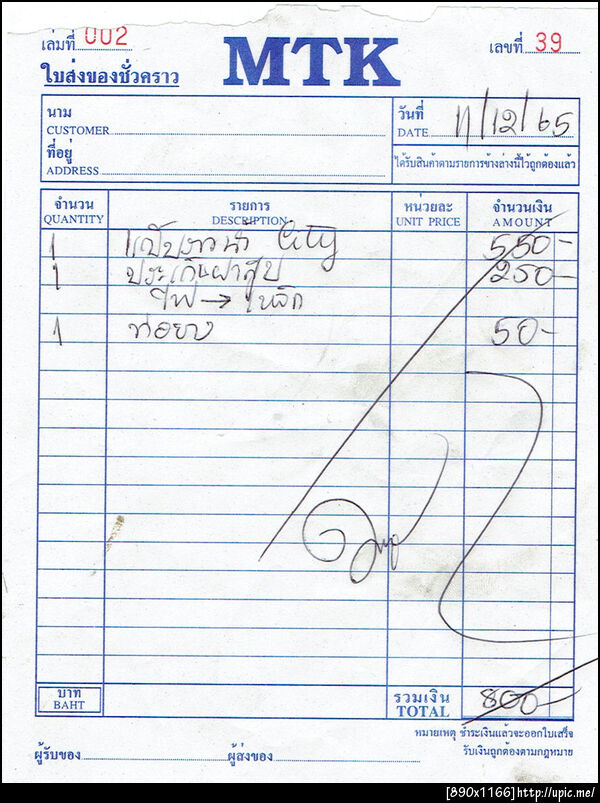 เล่มที่ 002
MTK
เลขที่ 39
ใบส่งของชั่วคราว
นาม
CUSTOMER
ที่อยู่
ADDRESS
วันที่
DATE 11/12/65
ได้รับสินค้าตามรายการข้างล่างนี้ไว้ถูกต้องแล้ว
จำนวน รายการ หน่วยละ จำนวนเงิน
QUANTITY DESCRIPTION UNIT PRICE AMOUNT
1 City 550-
1 ประเก็นฝาสูบ 250-
ไฟ → เหล็ก
1 ท่อยาง 50-
บาท รวมเงิน
BAHT TOTAL 800-
หมายเหตุ ชำระเงินแล้วจะออกใบเสร็จ
รับเงินถูกต้องตามกฎหมาย
ผู้รับของ ผู้ส่งของ
[890x1166]http://upic.me/